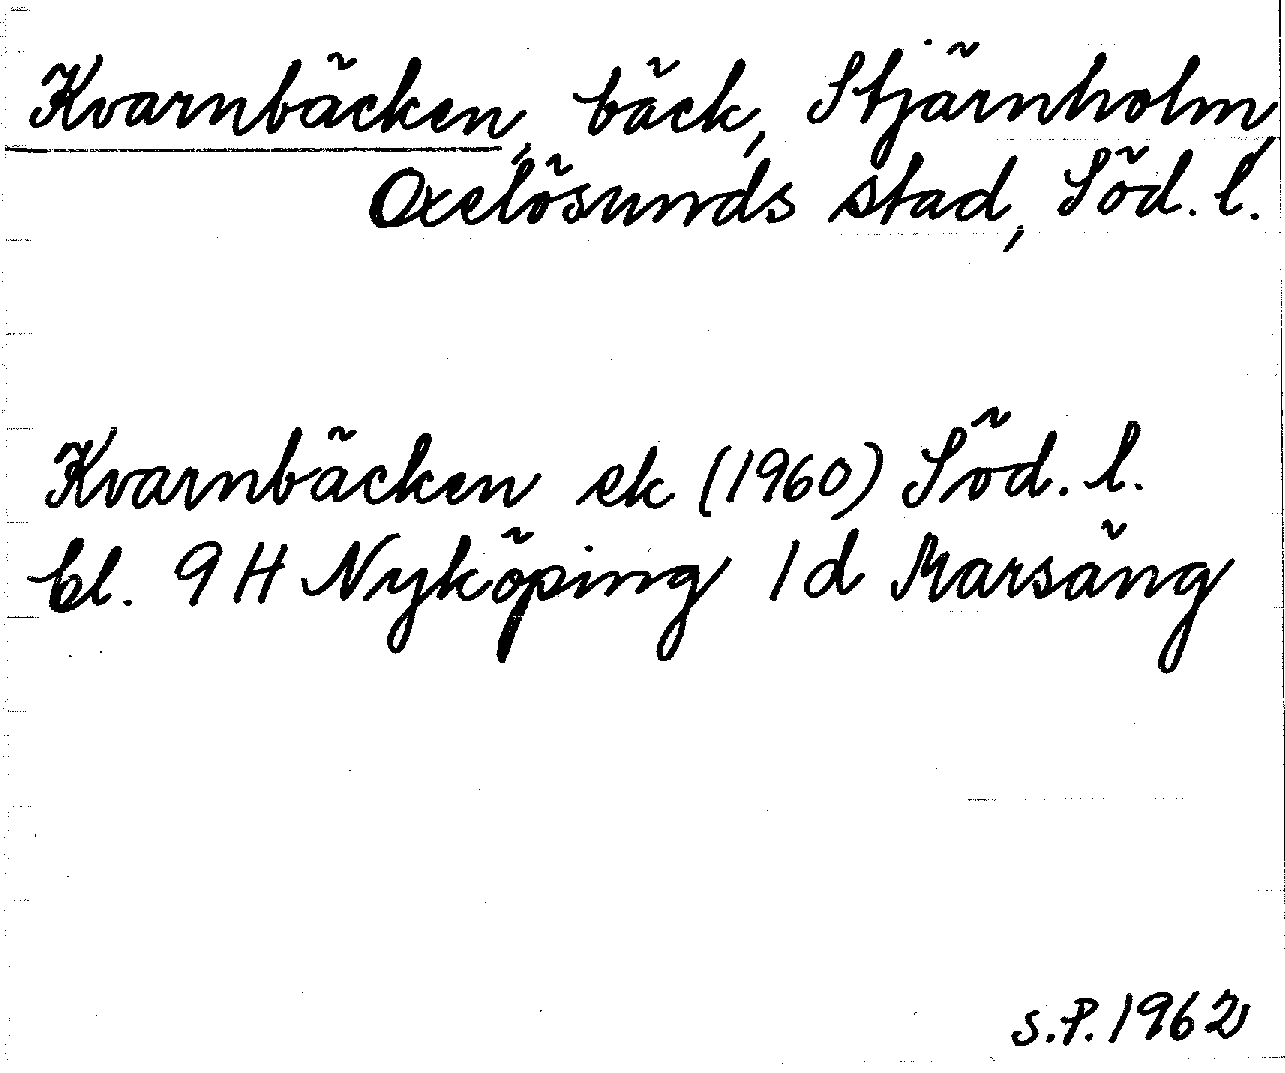 Kvarnbäcken, bäck, Stjärnholm,
Oxelösunds stad, Söd. l.
Kvarnbäcken ek (1960) Söd. l.
bl. 9 H Nyköping 1 d Marsäng
S.P. 1962